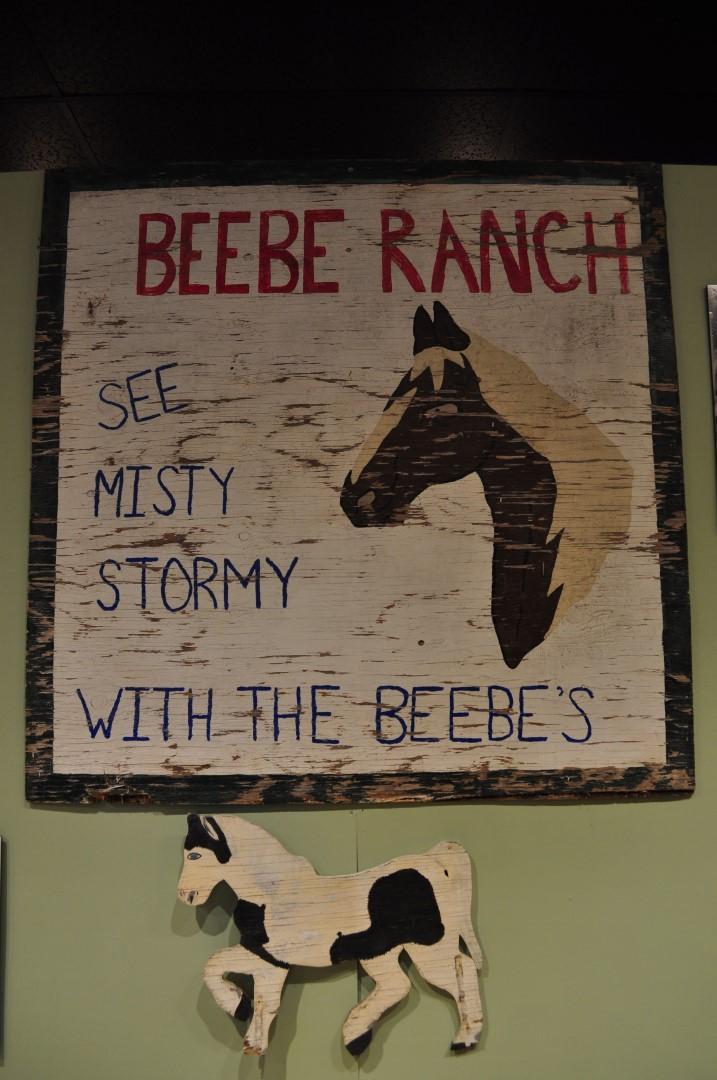 BEEBE RANCH
SEE
MISTY
STORMY
WITH THE BEEBE'S